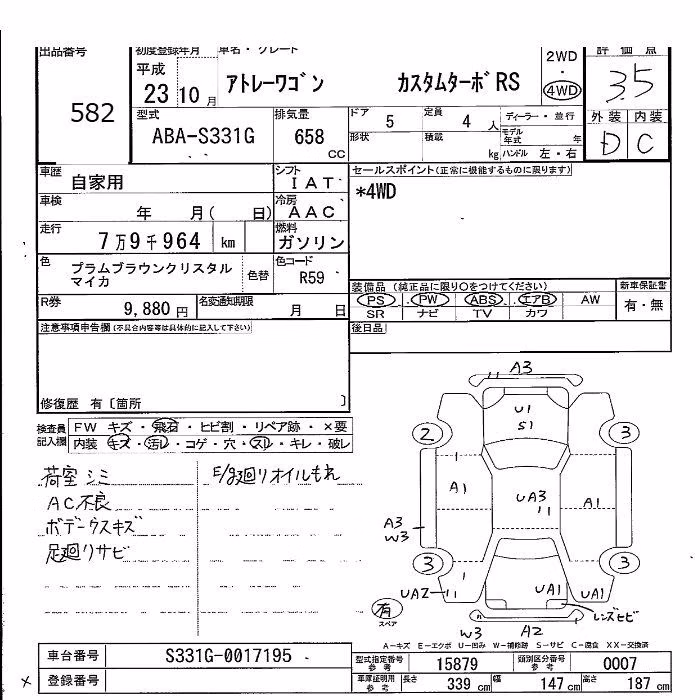 出品番号 初度登録年月 車名・グレード 2WD 評価点
平成 アトレーワゴン カスタムターボRS ・ 3.5
582 23 10 月 4WD
型式 排気量 ドア 5 定員 4 人 ディーラー・並行 外装 内装
ABA-S331G 658 cc 形状 積載 kg モデル年式 年 D C
ハンドル 左・右
車歴 自家用 シフト IAT セールスポイント(正常に機能するものに限ります)
車検 年 月( 日) 冷房 AAC *4WD
走行 7万9千964 km 燃料 ガソリン
色 プラムブラウンクリスタル 色替 色コード R59
マイカ
装備品 (純正品に限り○をつけてください) 新車保証書
R券 9,880円 名変通知期限 月 日 PS PW ABS エアB AW 有・無
SR ナビ TV カワ
注意事項申告欄(不具合内容等は具体的に記入して下さい) 後日品
修復歴 有〔箇所 〕
検査員 FW キズ・飛石・ヒビ割・リペア跡・×要
記入欄 内装 キズ・汚レ・コゲ・穴・スレ・キレ・破レ
荷室シミ E/g廻りオイルもれ
AC不良
ボデークスキズ
足廻りサビ
A3
U1
S1
2 3
A1 UA3 A1
A3
W3
3 3
UA2 UA1 UA1
有 レンズヒビ
スペア
W3 A2
A-キズ E-エクボ U-凹み W-補修跡 S-サビ C-腐食 XX-交換済
車台番号 S331G-0017195 型式指定番号 参考 15879 類別区分番号 参考 0007
登録番号 車庫証明用 参考 長さ 339 cm 幅 147 cm 高さ 187 cm